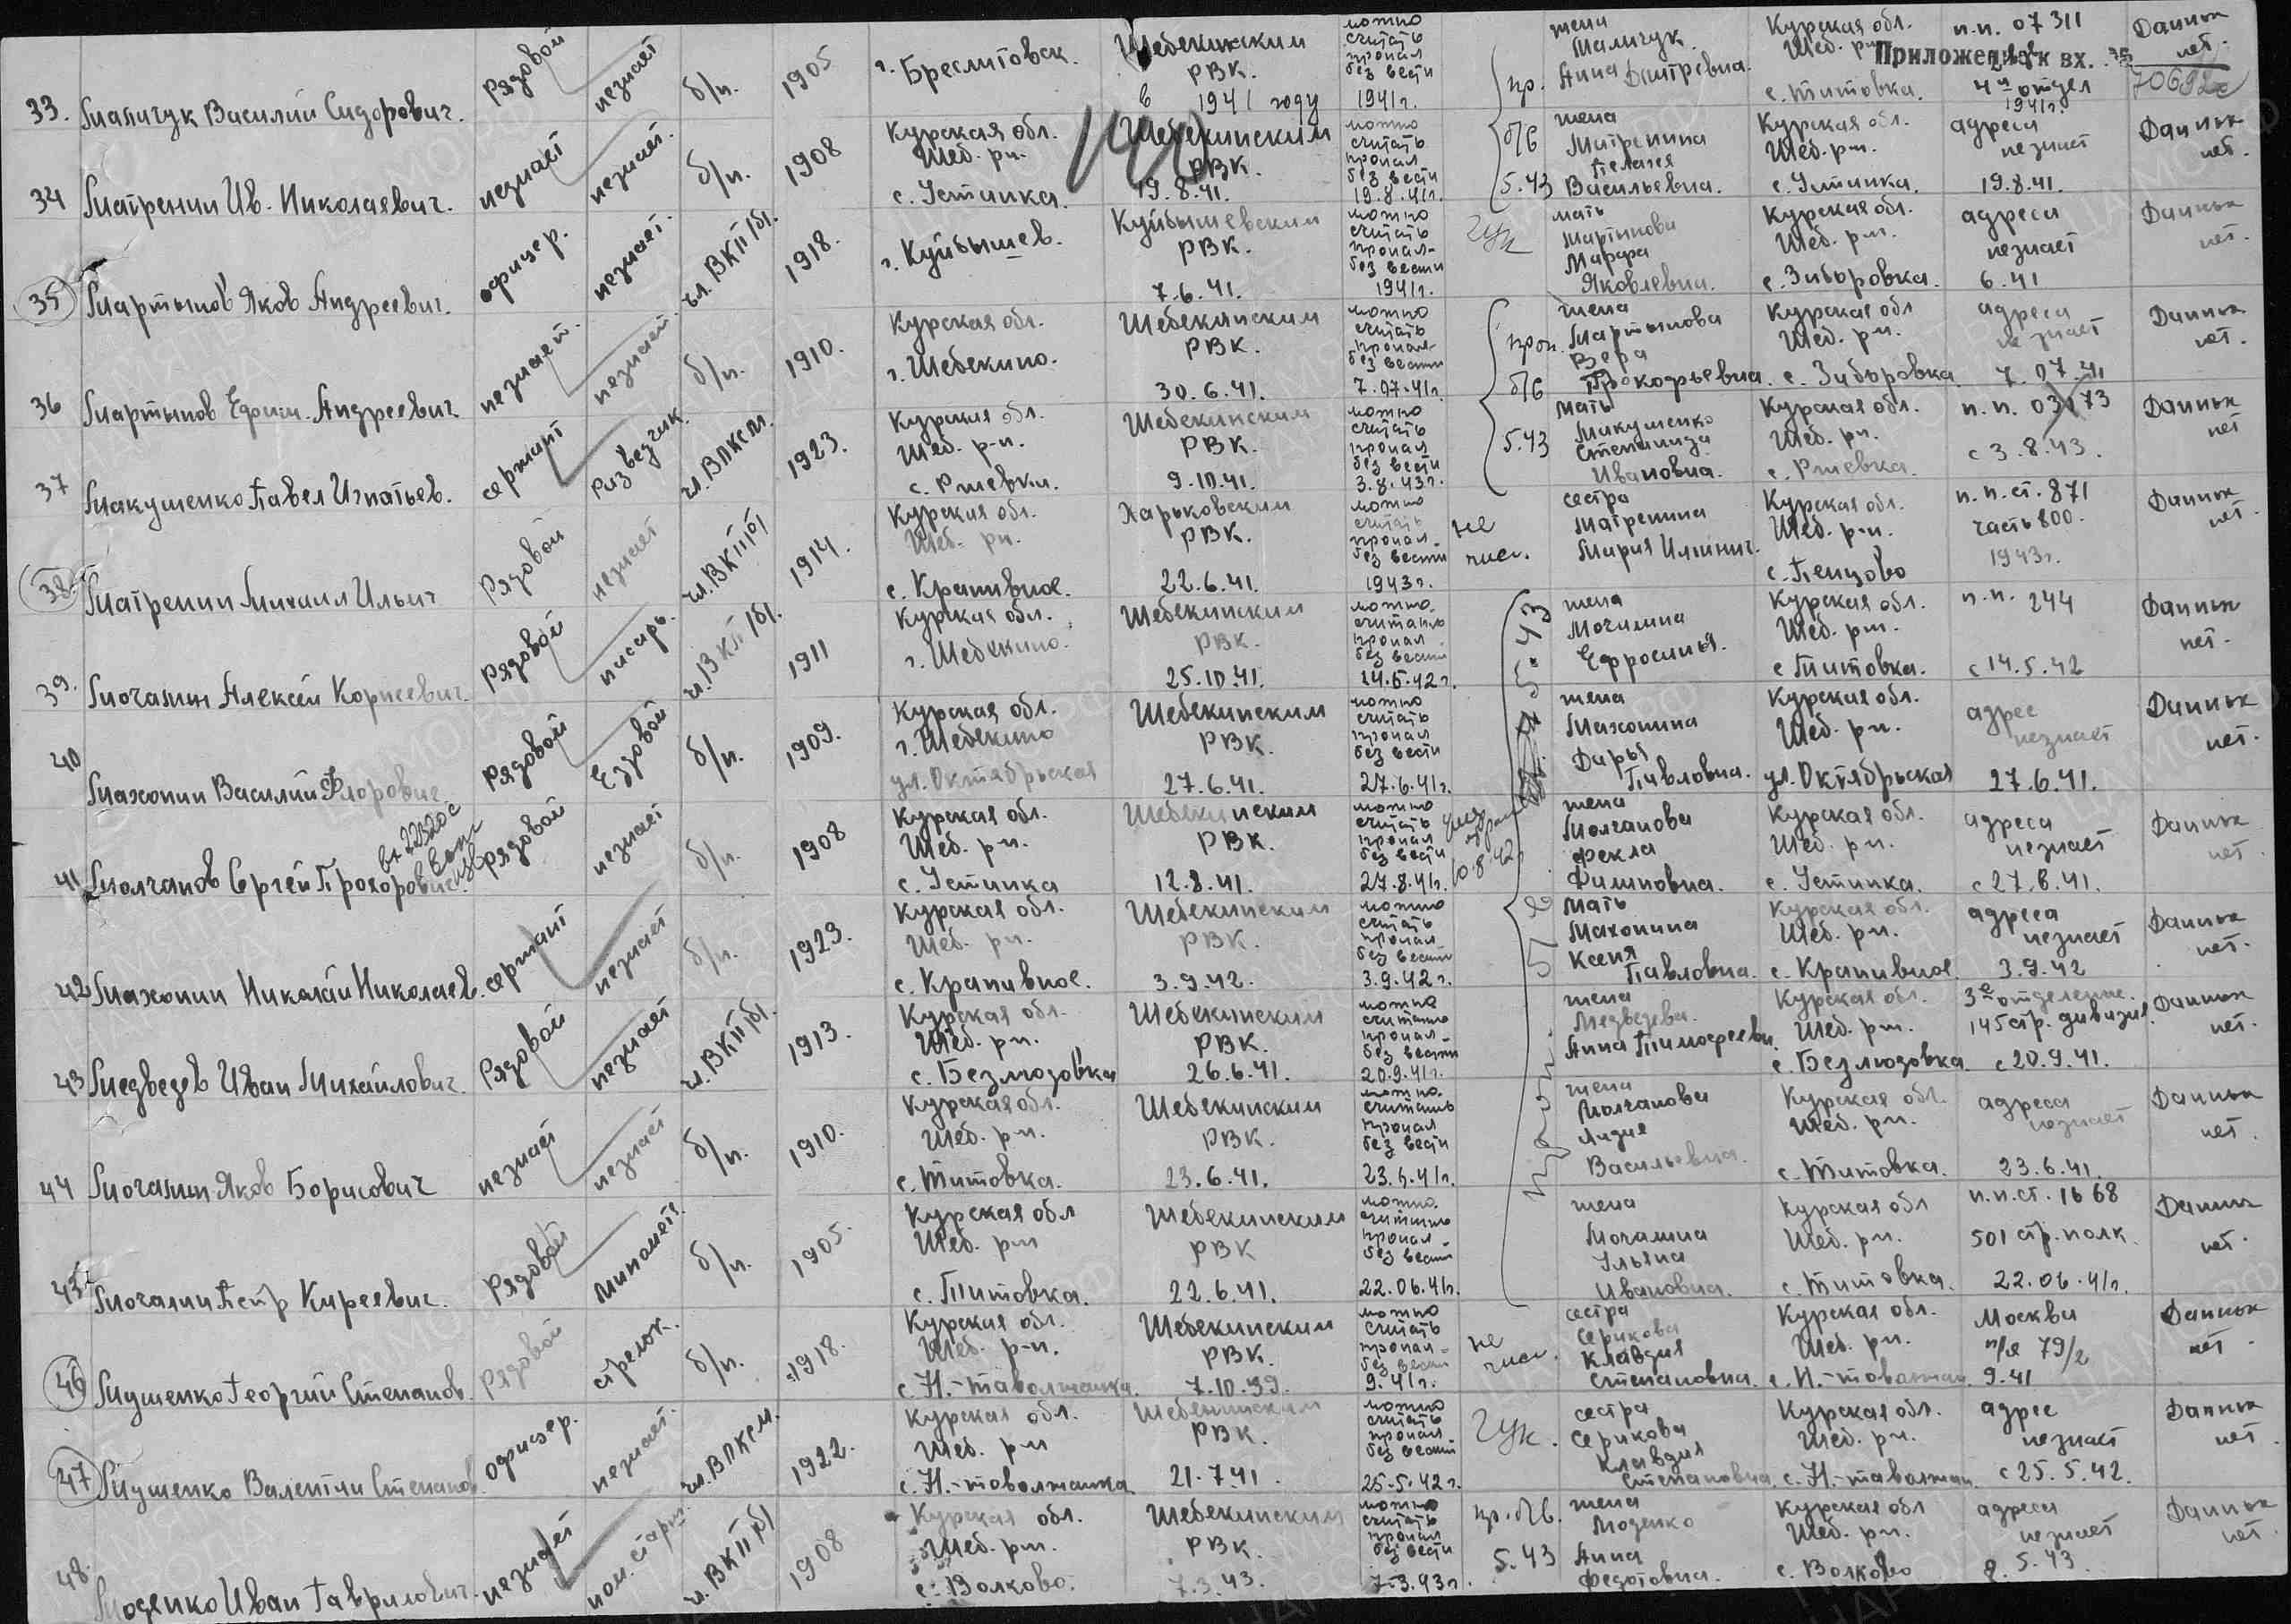 Приложение к вх.
70692с
33. Маличук Василий Сидорович. рядовой незнает б/п. 1905 г. Бреслитовск. Шебекинским РВК. в 1941 году можно считать пропал без вести 1941г. пр. жена Маличук Анна Дмитревна. Курская обл. Шеб. рн. с. Титовка. п.п. 07311 4й отдел 1941г. Данных нет.
34 Матренин Ив. Николаевич. незнает незнает. б/п. 1908 Курская обл. Шеб. рн. с. Устинка. Шебекинским РВК. 19.8.41. можно считать пропал без вести 19.8.41г. б/в 5.43 жена Матренина Пелагея Васильевна. Курская обл. Шеб. рн. с. Устинка. адреса незнает 19.8.41. Данных нет.
35 Мартынов Яков Андреевич. офицер. незнает. чл. ВКП/б/. 1918. г. Куйбышев. Куйбышевским РВК. 7.6.41. можно считать пропал без вести 1941г. ГУК мать Мартинова Марфа Яковлевна. Курская обл. Шеб. рн. с. Зиборовка. адреса незнает 6.41 Данных нет.
36 Мартынов Ефим Андреевич незнает. незнает. б/п. 1910. Курская обл. г. Шебекино. Шебекинским РВК. 30.6.41. можно считать пропал без вести 7.07.41г. проп. б/в жена Мартынова Вера Прокофьевна. Курская обл Шеб. рн. с. Зиборовка. адреса не знает 7.07.41 Данных нет.
37 Макушенко Павел Игнатьев. сержант разведчик. чл. ВЛКСМ. 1923. Курская обл. Шеб. р-н. с. Ржевка. Шебекинским РВК. 9.10.41. можно считать пропал без вести 3.8.43г. 5.43 мать Микушенко Степанида Ивановна. Курская обл. Шеб. рн. с. Ржевка. п.п. 03173 с 3.8.43. Данных нет
38. Матренин Михаил Ильич рядовой незнает чл. ВКП/б/ 1914. Курская обл. Шеб. рн. с. Крапивное. Харьковским РВК. 22.6.41. можно считать пропал без вести 1943г. не числ. сестра Матренина Мария Илинич. Курская обл. Шеб. р-н. с. Пенцово п.п.ст. 871 часть 800. 1943г. Данных нет.
39. Мочалин Алексей Корнеевич. рядовой писарь. чл. ВКП/б/. 1911 Курская обл. г. Шебекино. Шебекинским РВК. 25.10.41. можно считать пропал без вести 14.5.42г. жена Мочалина Ефросинья. Курская обл. Шеб. рн. с Титовка. п.п. 244 с 14.5.42 Данных нет.
40 Махонин Василий Флорович рядовой ездовой б/п. 1909. Курская обл. г. Шебекино ул. Октябрьская Шебекинским РВК. 27.6.41. можно считать пропал без вести 27.6.41г. жена Махонина Дарья Павловна. Курская обл. Шеб. рн. ул. Октябрьская адрес незнает 27.6.41. Данных нет.
41 Молчанов Сергей Прохорович. вх 22320с рядовой незнает б/п. 1908 Курская обл. Шеб. рн. с. Устинка Шебекинским РВК. 12.8.41. можно считать пропал без вести 27.8.41г. жена Молчанова Фекла Филиповна. Курская обл. Шеб. рн. с. Устинка. адреса незнает с 27.8.41. Данных нет.
42 Махонин Николай Николаев. сержант незнает б/п. 1923. Курская обл. Шеб. рн. с. Крапивное. Шебекинским РВК. 3.9.42. можно считать пропал без вести 3.9.42г. мать Махонина Ксеня Павловна. Курская обл. Шеб. рн. с. Крапивное. адреса незнает 3.9.42 Данных нет.
43 Медведев Иван Михайлович. рядовой незнает чл. ВКП/б/. 1913. Курская обл. Шеб. рн. с. Безлюдовка Шебекинским РВК. 26.6.41. можно считать пропал без вести 20.9.41г. жена Медведева. Анна Тимофеевн. Курская обл. Шеб. рн. с. Безлюдовка. 3е отделение. 145 стр. дивизия с 20.9.41. Данных нет.
44 Мочалин Яков Борисович незнает незнает б/п. 1910. Курская обл. Шеб. рн. с. Титовка. Шебекинским РВК. 23.6.41. можно считать пропал без вести 23.6.41г. жена Молчанова Лидия Васильевна. Курская обл. Шеб. рн. с. Титовка. адреса незнает 23.6.41. Данных нет.
45 Мочалин Петр Киреевич. рядовой миномет. б/п. 1905. Курская обл Шеб. рн с. Титовка. Шебекинским РВК 22.6.41. можно считать пропал без вести 22.06.41г. жена Мочалина Ульяна Ивановна. Курская обл Шеб. рн. с. Титовка. п.п.ст. 1668 501 стр. полк. 22.06.41г. Данных нет.
46 Мушенко Георгий Степанов. рядовой стрелок. б/п. 1918. Курская обл. Шеб. р-н. с. Н.-таволжанка. Шебекинским РВК. 7.10.39. можно считать пропал без вести 9.41г. не числ. сестра Серикова Клавдия Степановна. Курская обл. Шеб. рн. с. Н.-таволжан. Москва п/я 79/2 9.41 Данных нет.
47 Мушенко Валентин Степанов. офицер. незнает. чл. ВЛКСМ. 1922. Курская обл. Шеб. рн с. Н.-таволжанка Шебекинским РВК. 21.7.41. можно считать пропал без вести 25.5.42г. ГУК. сестра Серикова Клавдия Степановна. Курская обл. Шеб. рн. с. Н.-таволжан. адрес незнает с 25.5.42. Данных нет.
48. Моденко Иван Гаврилович. незнает пом. старш. чл. ВКП/б/ 1908 Курская обл. Шеб. рн. с. Волково. Шебекинским РВК. 7.3.43. можно считать пропал без вести 7.3.43г. пр. б/в. 5.43 жена Моденко Анна Федотовна. Курская обл Шеб. рн. с. Волково адреса незнает 8.5.43 Данных нет.